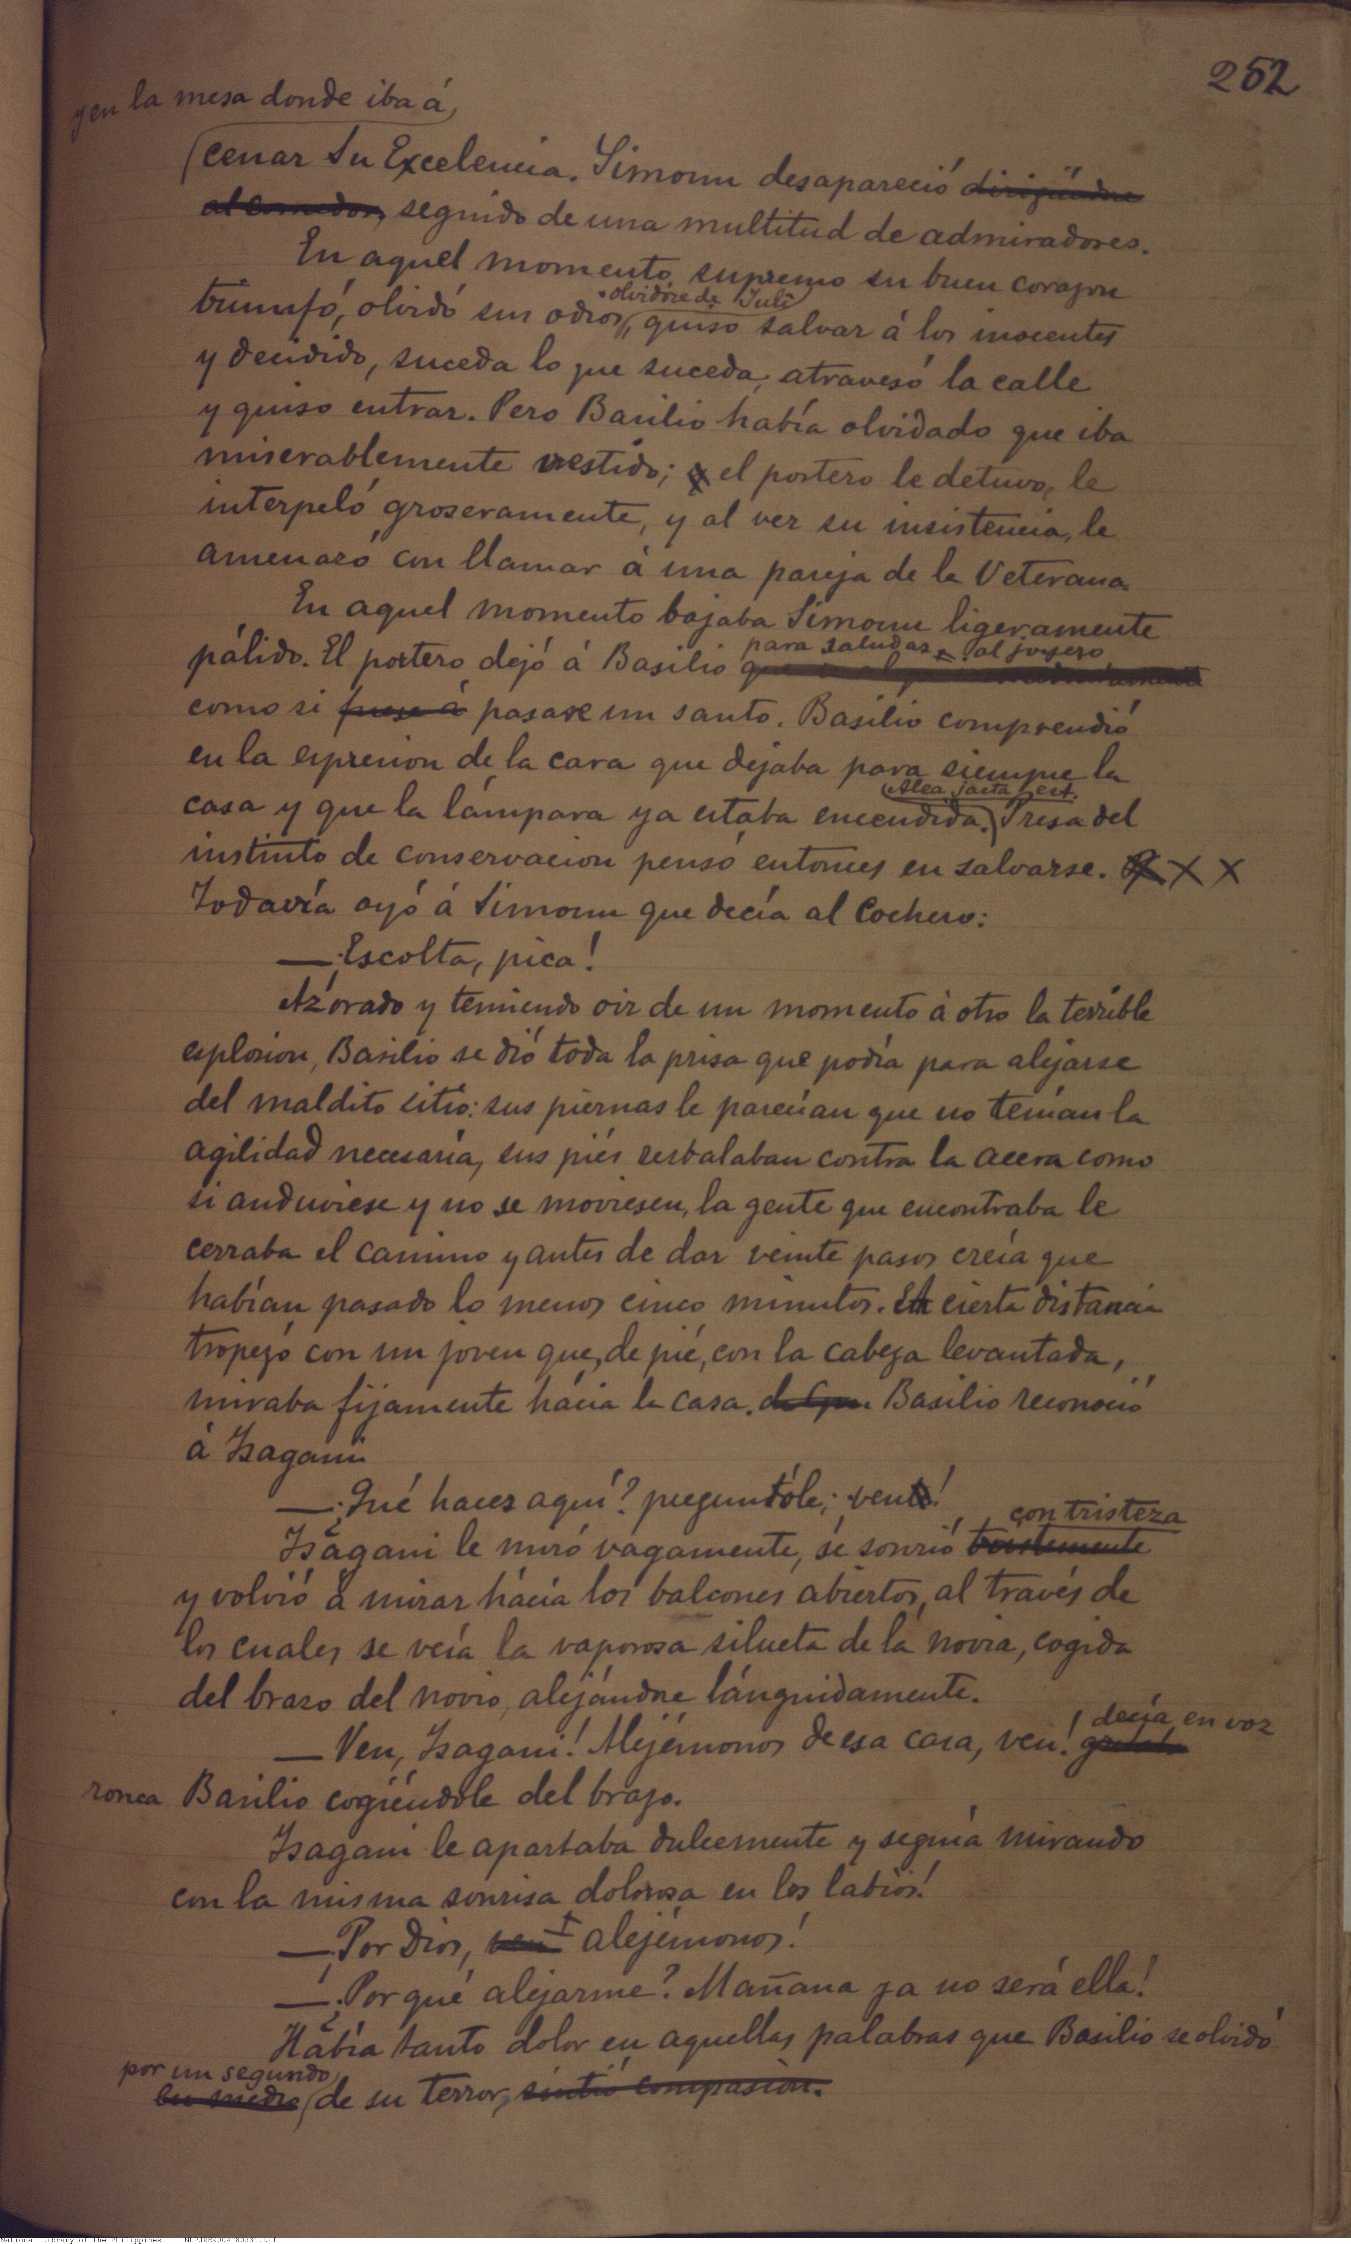 252
y en la mesa donde iba á
cenar Su Excelencia. Simoun desapareció dirigiéndose
al comedor, seguido de una multitud de admiradores.
En aquel momento supremo su buen corazon
olvidóse de Juli
triunfó, olvidó sus odios, quiso salvar á los inocentes
y decidido, suceda lo que suceda, atravesó la calle
y quiso entrar. Pero Basilio había olvidado que iba
miserablemente vestido; el portero le detuvo, le
interpeló groseramente, y al ver su insistencia, le
amenazó con llamar á una pareja de la Veterana.
En aquel momento bajaba Simoun ligeramente
para saludar al joyero
pálido. El portero dejó á Basilio
como si fuese á pasase un santo. Basilio comprendió
en la espresion de la cara que dejaba para siempre la
Alea jacta est.
casa y que la lámpara ya estaba encendida. Presa del
instinto de conservacion pensó entonces en salvarse. X X
Todavía oyó á Simoun que decía al cochero:
— ¡Escolta, pica!
Azorado y temiendo oir de un momento á otro la terrible
esplosion, Basilio se dió toda la prisa que podía para alejarse
del maldito sitio: sus piernas le parecían que no tenían la
agilidad necesaria, sus piés resbalaban contra la acera como
si anduviese y no se moviesen, la gente que encontraba le
cerraba el camino y antes de dar veinte pasos creía que
habían pasado lo menos cinco minutos. A cierta distancia
tropezó con un joven que, de pié, con la cabeza levantada,
miraba fijamente hácia la casa. Basilio reconoció
á Isagani
— ¿Qué haces aquí? preguntóle; ¡ven!
con tristeza
Isagani le miró vagamente, se sonrió tristemente
y volvió á mirar hácia los balcones abiertos, al través de
los cuales se veía la vaporosa silueta de la novia, cogida
del brazo del novio, alejándose lánguidamente.
decía en voz
— Ven, Isagani! Alejémonos de esa casa, ven! gritaba
ronca Basilio cogiéndole del brazo.
Isagani le apartaba dulcemente y seguía mirando
con la misma sonrisa dolorosa en los labios!
— ¡Por Dios, ven alejémonos!
— ¿Por qué alejarme? Mañana ya no será ella!
Había tanto dolor en aquellas palabras que Basilio se olvidó
por un segundo
de su terror, sintió compasion.